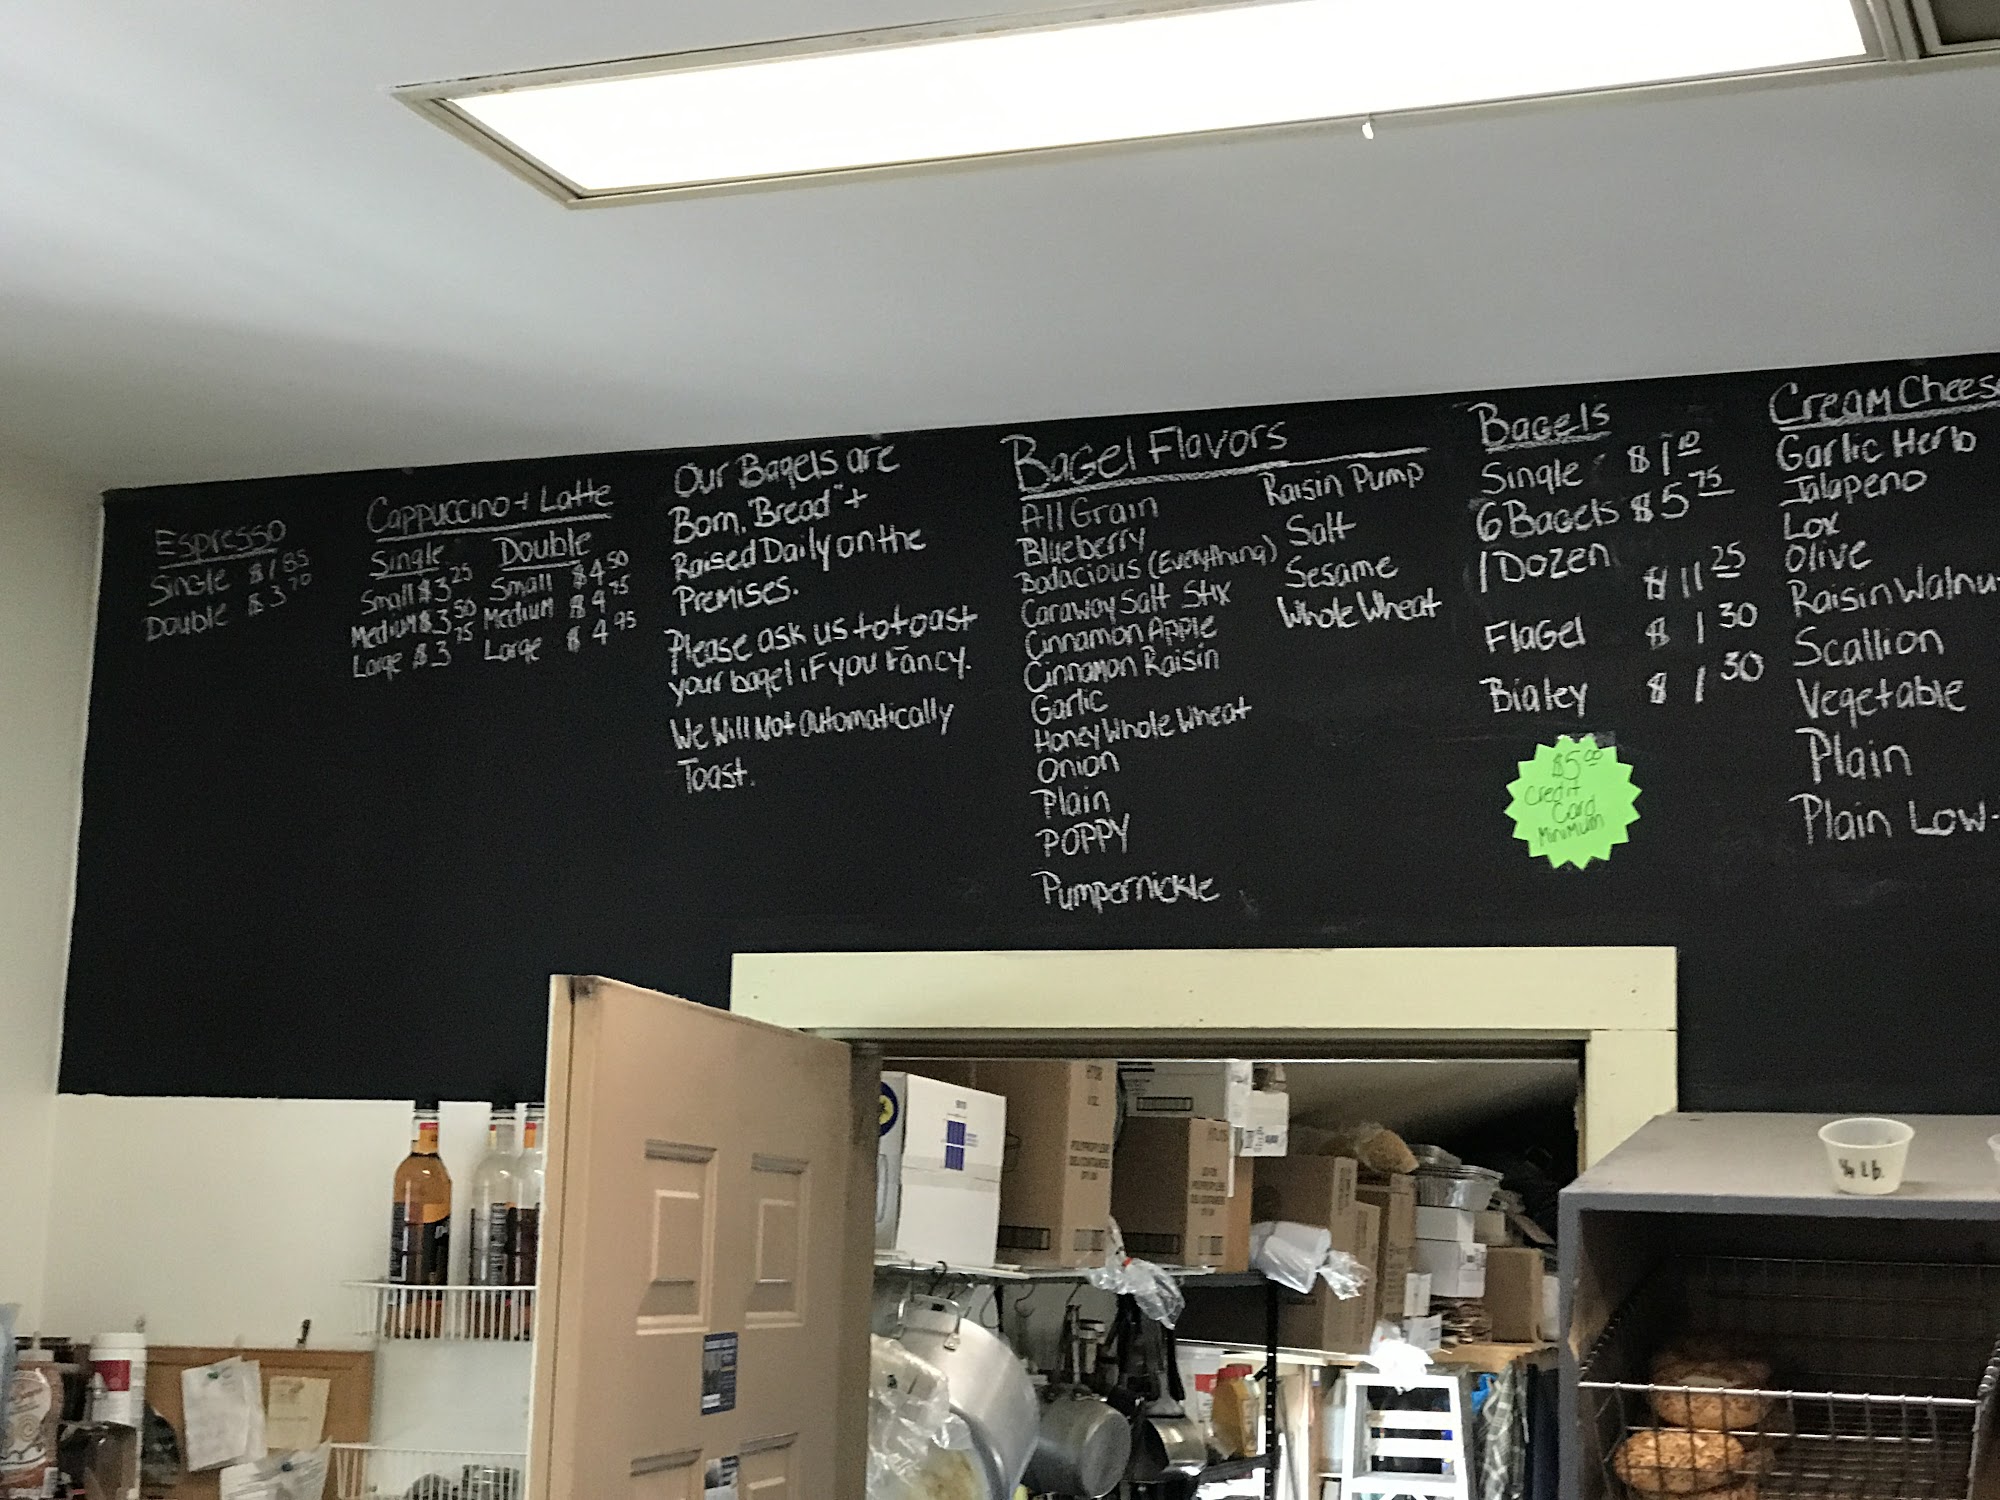 Espresso
Single $1.85
Double $3.70
Cappuccino + Latte
Single
Small $3.25
Medium $3.50
Large $3.75
Double
Small $4.50
Medium $4.75
Large $4.95
Our Bagels are
Born, "Bread" +
Raised Daily on the
Premises.
Please ask us to toast
your bagel if you Fancy.
We Will Not automatically
Toast.
Bagel Flavors
All Grain
Blueberry
Bodacious (Everything)
Caraway Salt Stix
Cinnamon Apple
Cinnamon Raisin
Garlic
Honey Whole Wheat
Onion
Plain
POPPY
Pumpernickle
Raisin Pump
Salt
Sesame
Whole Wheat
Bagels
Single $1.10
6 Bagels $5.75
1 Dozen $11.25
Flagel $1.30
Bialey $1.30
$5.00
Credit
Card
Minimum
Cream Cheese
Garlic Herb
Jalapeno
Lox
Olive
Raisin Walnu
Scallion
Vegetable
Plain
Plain Low-
1/4 Lb.